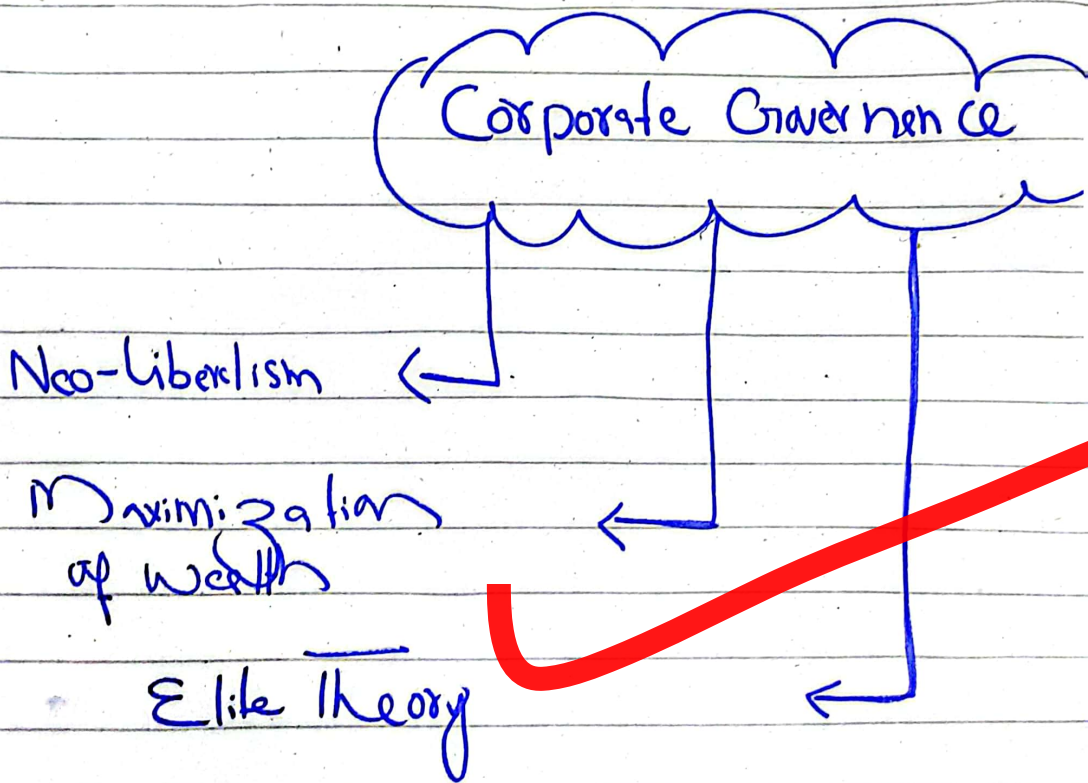 Corporate Governence
Neo-Liberlism
Maximization
of wealth
Elite Theory